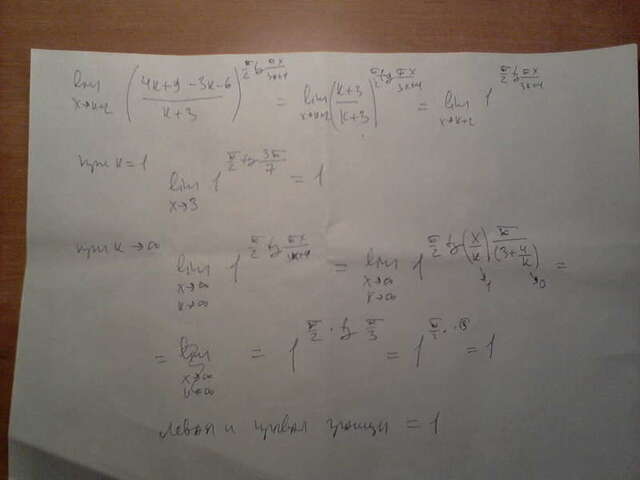 lim x→k+2 ((4k+9 -3k-6)/(k+3))^(π/2 tg πx/(3k+4)) = lim x→k+2 ((k+3)/(k+3))^(π/2 tg πx/(3k+4)) = lim x→k+2 1^(π/2 tg πx/(3k+4))
при k=1 lim x→3 1^(π/2 tg 3π/7) = 1
при k→∞ lim x→∞ k→∞ 1^(π/2 tg πx/(3k+4)) = lim x→∞ k→∞ 1^(π/2 tg (x/k) π/(3+4/k)) =
→1 →0
= lim x→∞ k→∞ = 1^(π/2 · tg π/3) = 1^(π/2 · √3) = 1
левая и правая границы = 1